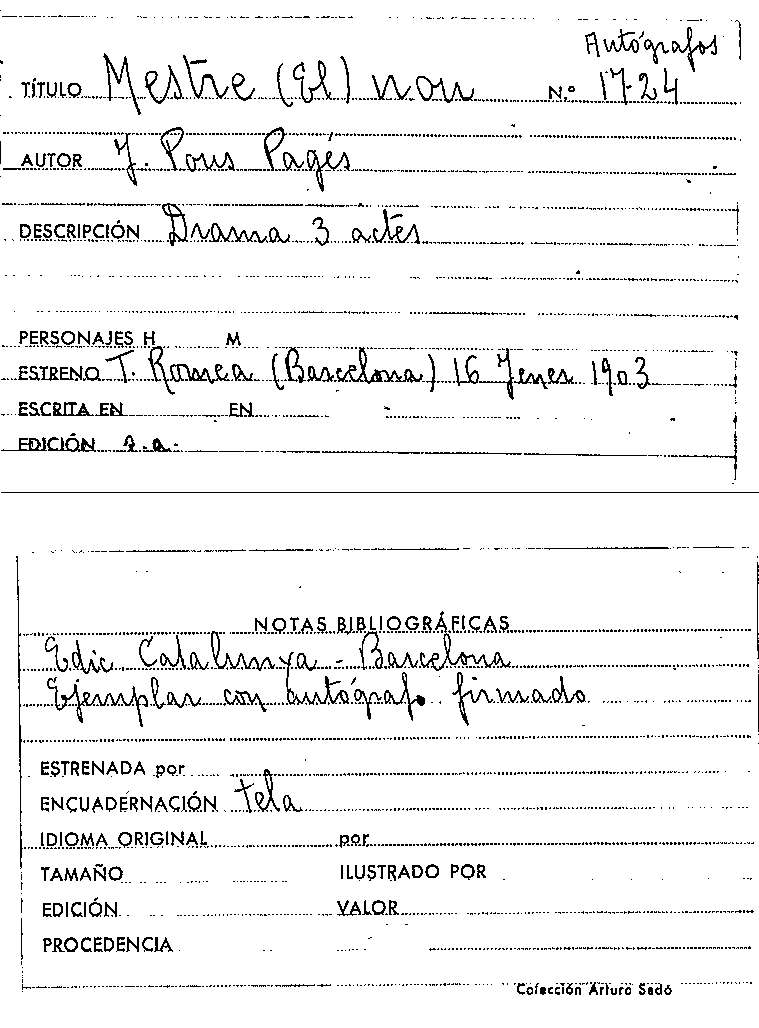 Autógrafos
TÍTULO Mestre (El) nou N.º 17-24
AUTOR J. Pous Pagés
DESCRIPCIÓN Drama 3 actes
PERSONAJES H M
ESTRENO T. Romea (Barcelona) 16 Jener 1903
ESCRITA EN EN
EDICIÓN 2.a.
NOTAS BIBLIOGRÁFICAS
Edic Catalunya - Barcelona
Ejemplar con autógrafo firmado
ESTRENADA por
ENCUADERNACIÓN tela
IDIOMA ORIGINAL por
TAMAÑO ILUSTRADO POR
EDICIÓN VALOR
PROCEDENCIA
Colección Arturo Sedó